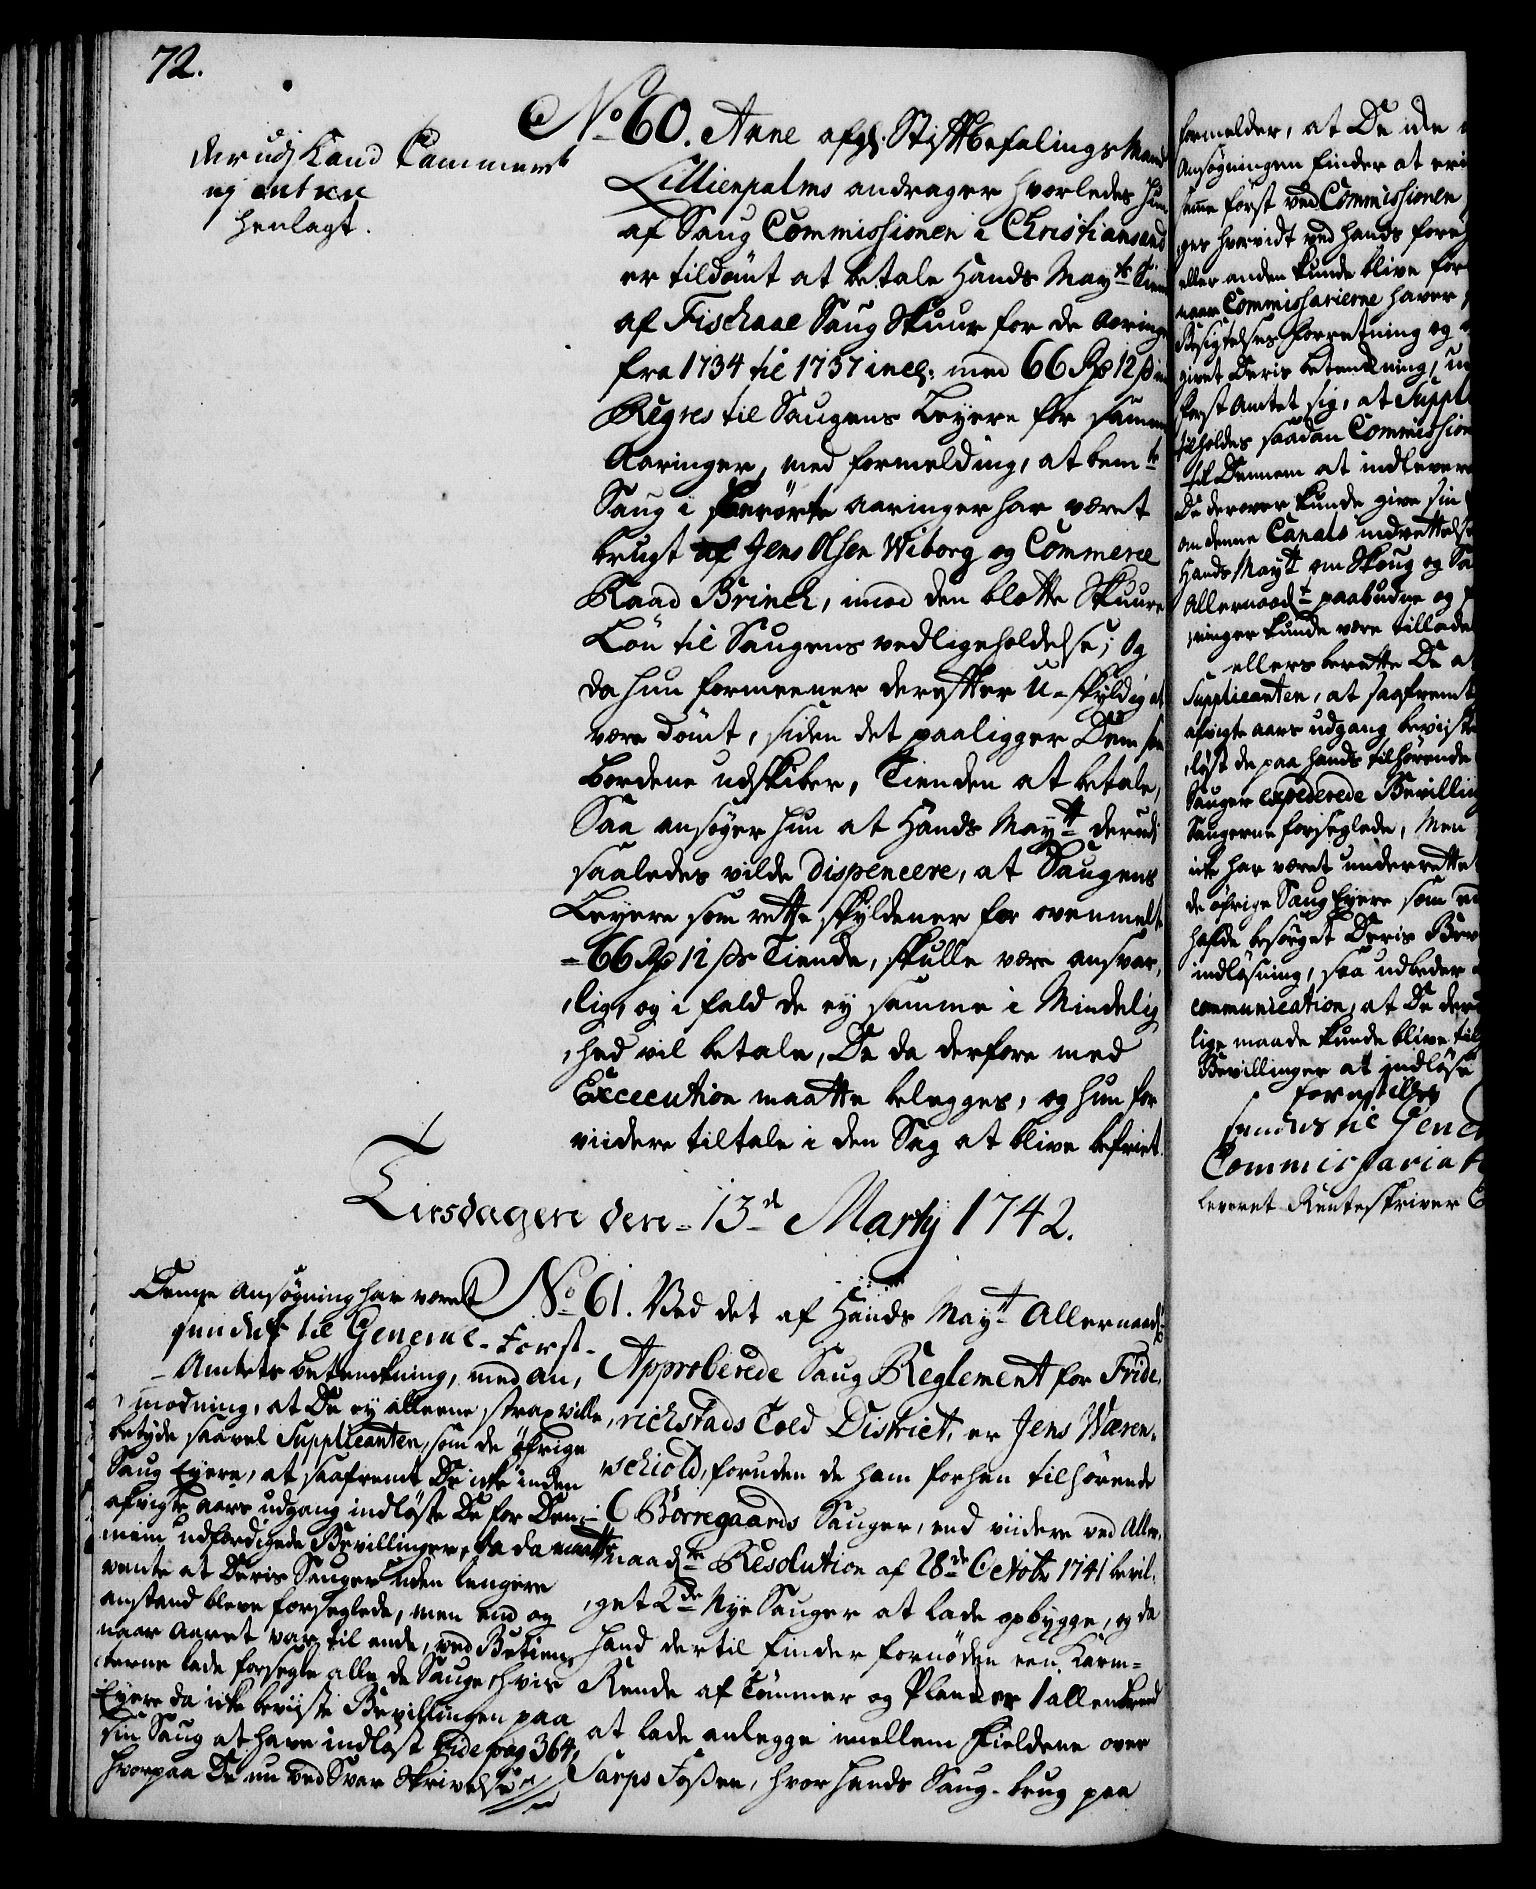 72.
derudj Kand Cammeret
ej entrere
henlagt.
No 60. Anne afgl. Stiftbefalings Mand
Lillienpalms andrager hvorledes hun
af Saug Commissionen i Christiansand
er tildömt at betale Hands Mayts Tiende
af Fischaae Saug Skuur for de Aaringer
fra 1734 til 1737 incl: med 66 Rd 12 s
Regres til Saugens Leyere for samme
Aaringer, med formelding, at bemte
Saug i berörte aaringer har været
brugt af Jens Olsen Wiborg og Commerce
Raad Brinch, imod den blotte Skuure
Lön til Saugens vedligeholdelse; Og
da hun formeener derefter U-skyldig at
være dömt, siden det paaligger Dem som
bordene udskiber, Tienden at betale,
Saa ansöger hun at Hands Maytt derudi
saaledes vilde dispencere, at Saugens
Leyere som rette skyldener for ovenmelte
66 Rd 12 s Tiende, skulle være ansvar,
,lig, og i fald de ej samme i Mindelig
,hed vil betale, De da derfore med
Excecution maatte belegges, og hun for
viidere tiltale i den Sag at blive befriet.
Tirsdagen den 13de Martij 1742.
Denne Ansögning har været
sendt til General-Forst-
Amtets betenkning, med an,
,modning, at De ej alleene strax ville
betyde saavel Supplicanten, som de öfrige
Saug Eyere, at saafremt De icke inden
afvigte aars udgang indlöste De for Den,
nem udferdigede Bevillinger, da de maatte
vente at Deris Sauger uden lengere
anstand bleve forseglede, men end og
naar Aaret var til ende, ved Betien,
terne lade forsegle alle de Sauge, hvis
Eyere da icke beviiste Bevillingen paa
sin Saug at have indlöst vide pag 364,
hvorpaa De nu ved Svar Skrivelse
No 61. Ved det af Hands Maytt Allernaadt
Approberede Saug Reglement for Fride,
,richstads Told District, er Jens Wæren,
schiold, foruden de ham forhen tilhörende
6 Borregaards Sauger, end viidere ved Aller,
naadte Resolution af 28de Octobr 1741 bevil,
,get 2de Nye Sauger at lade opbygge, og da
hand dertil finder fornöden een Karm-
Rende af Tömmer og Plancker
at lade anlegge imellem Fieldene over
Sarps Fossen, hvor hands Saug-brug paa
formelder, at De icke
Ansögningen finder at eri
samme först ved Commissionen
,ges hvorvidt ved hands fore
eller anden kunde blive for
naar Commissarierne haver
Besigtelses forretning og
givet Deris betenkning, 
Forst Amtet sig, at Suppl
tilholdes saadan Commission
til Dennem at indlevere
De derover kunde give sin
om denne Canals indrettelse
Hands Maytt om Skoug og Sa
Allernaadt paabudne og
,ninger kunde være tillade
ellers berette De at
Supplicanten, at saafremt
afvigte aars udgang beviiste
,löst de paa hands tilhörende
Sauger expederede Bevilling
Saugerne forseglede, Men
icke har været underrettet
de öfrige Saug Eyere som
hafde besörget Deris Bev
indlösning, saa udbeder
communication, at De der
lige maade kunde blive til
Bevillinger at indlöse
forestilles
sendes til General
Commissariat
leveret Renteskriver